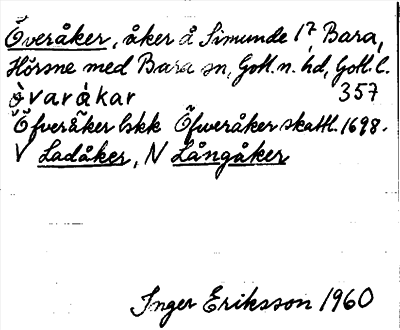 Överåker, åker å Simunde 1⁷, Bara,
Hörsne med Bara sn, Gotl. n. hd, Gotl. l.
òvaràkar 357
"Öfveråker lskk Öfweråker skattl. 1698.
V Ladåker, N Långåker
Inger Eriksson 1960